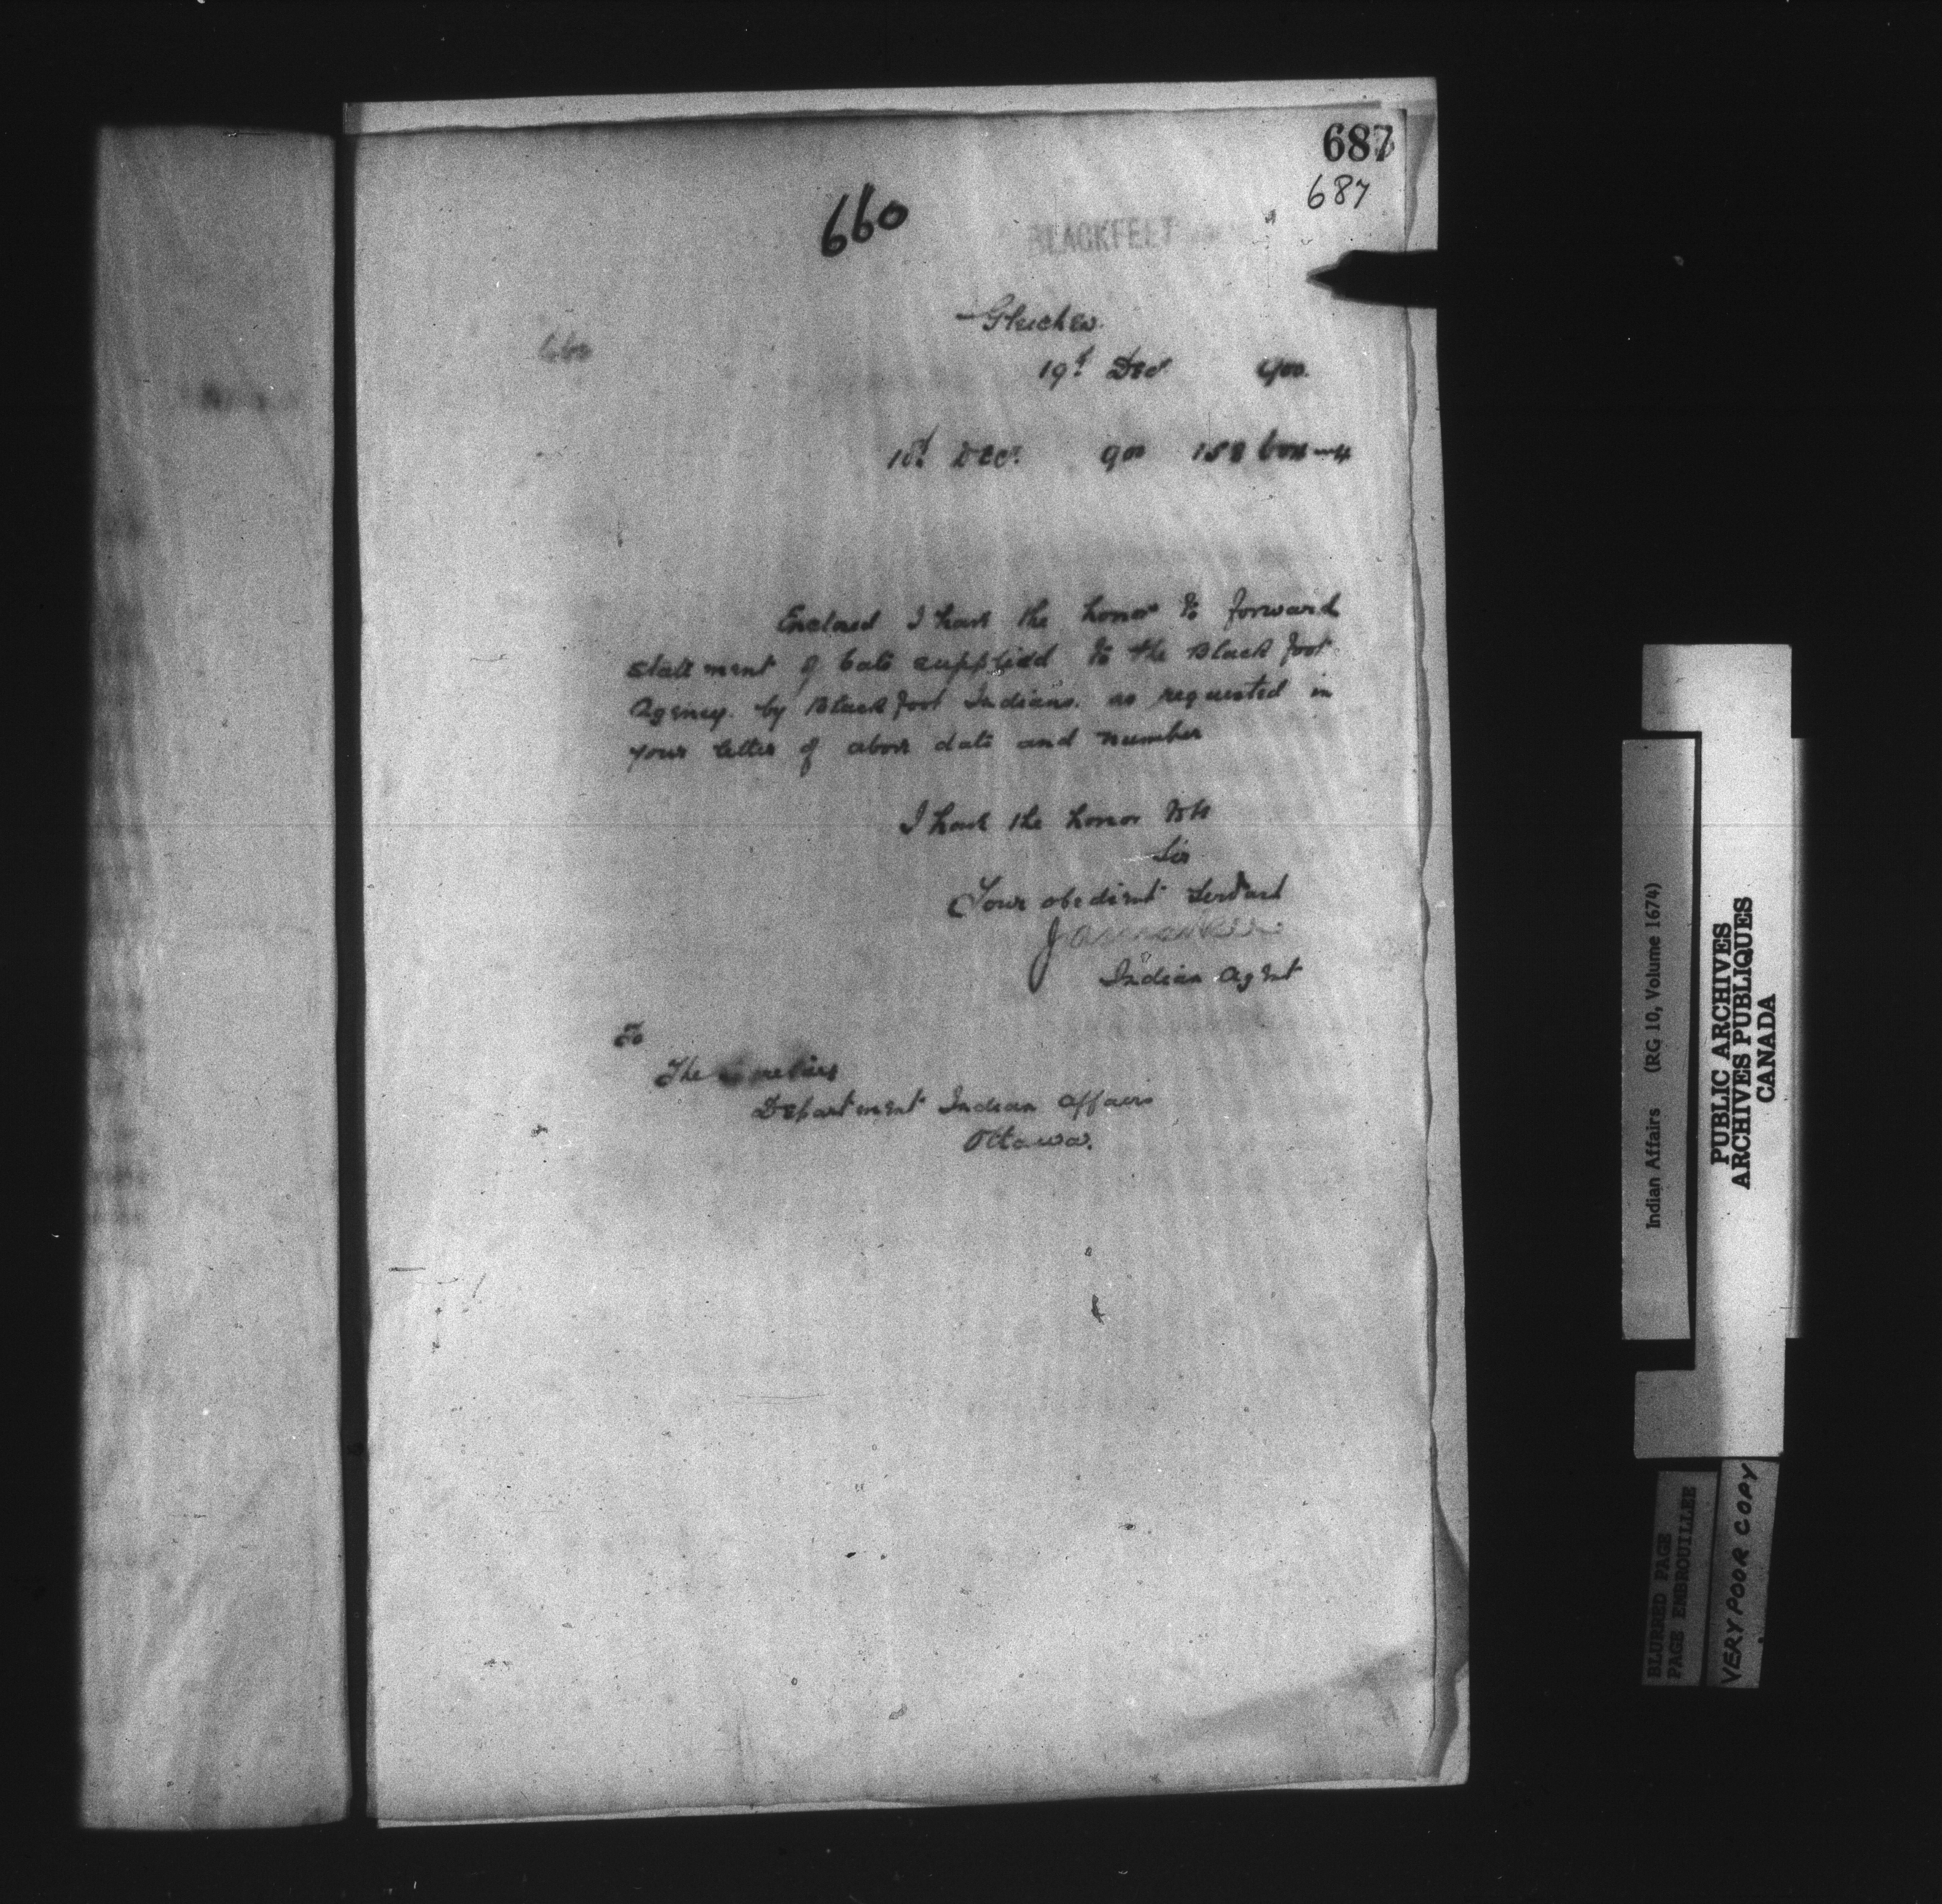 687
687
660
BLACKFEET
Gleichen
660
19th Decr 900.
18th Decr. 900 158
Enclosed I have the honor to forward
statement of Coal supplied to the Blackfoot
Agency. by Blackfoot Indians. as requested in
your letter of above date and number
I have the honor
Sir
Your obedient Servant
Indian Agent
To
The Secretary
Department Indian Affairs
Ottawa.
Indian Affairs (RG 10, Volume 1674)
PUBLIC ARCHIVES
ARCHIVES PUBLIQUES
CANADA
BLURRED PAGE
PAGE EMBROUILLEE
VERY POOR COPY